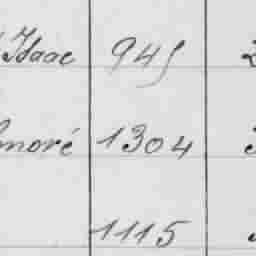 Isaac 945 2
moré 1304 3
1115